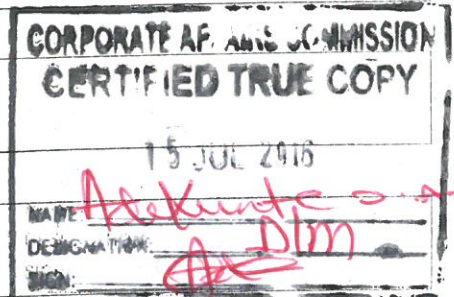 CORPORATE AFFAIRS COMMISSION
CERTIFIED TRUE COPY
15 JUL 2016
NAME:
DESIGNATION: DIM
SIGN: